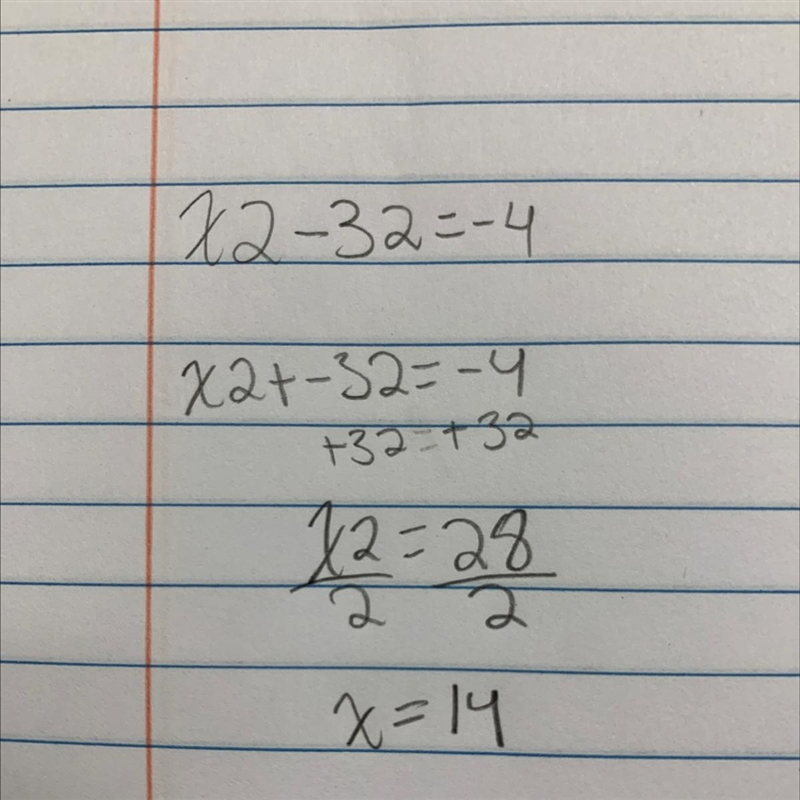 x2-32=-4
x2+-32=-4
+32=+32
x2=28
2 2
x=14